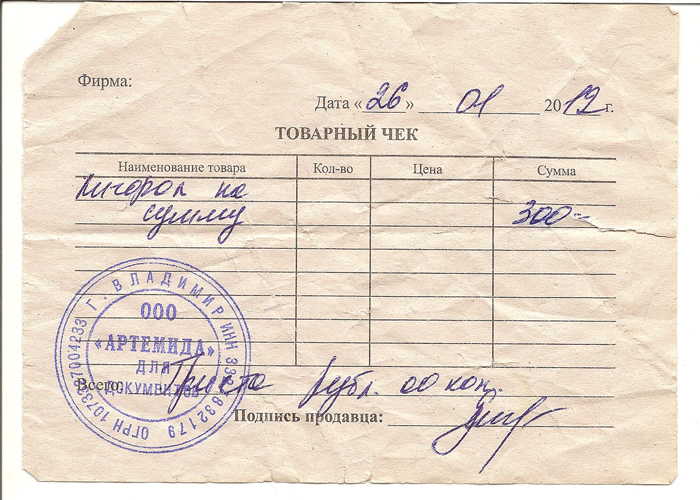 Фирма:
Дата «26» 01 2012г.
ТОВАРНЫЙ ЧЕК
Наименование товара Кол-во Цена Сумма
на
сумму 300=
Г. ВЛАДИМИР ИНН
ООО
«АРТЕМИДА»
ДЛЯ
ДОКУМЕНТОВ
ОГРН
Всего: Триста рубл. 00 коп.
Подпись продавца: